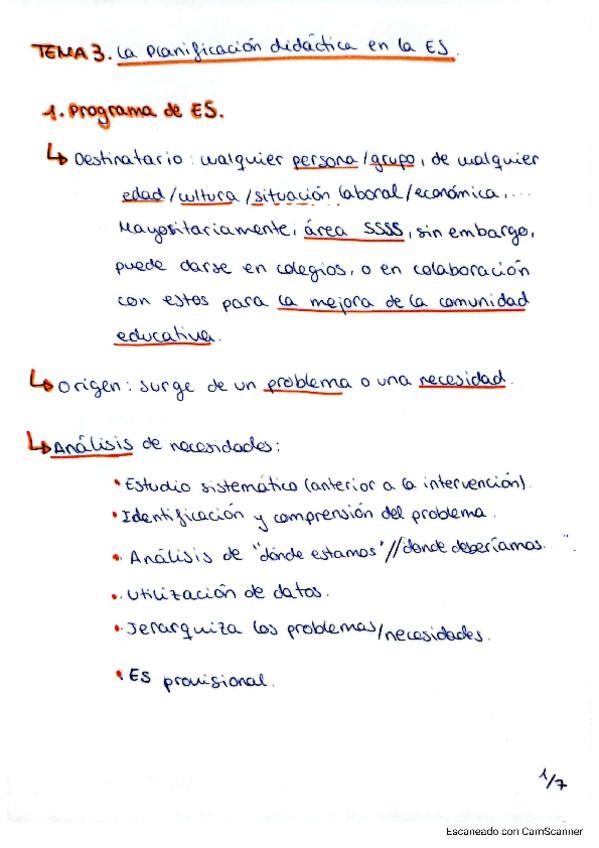 TEMA 3. La Planificación didáctica en la ES.
1. Programa de ES.
Destinatario: cualquier persona/grupo, de cualquier
edad/cultura/situación laboral/económica,...
Mayositariamente, área SSSS, sin embargo,
puede darse en colegios, o en colaboración
con estos para la mejora de la comunidad
educativa.
Origen: surge de un problema o una necesidad.
Análisis de necesidades:
• Estudio sistemático (anterior a la intervención).
• Identificación y comprensión del problema.
• Análisis de "dónde estamos"//donde deberíamos...".
• Utilización de datos.
• Jerarquiza los problemas/necesidades.
• ES provisional.
1/7
Escaneado con CamScanner